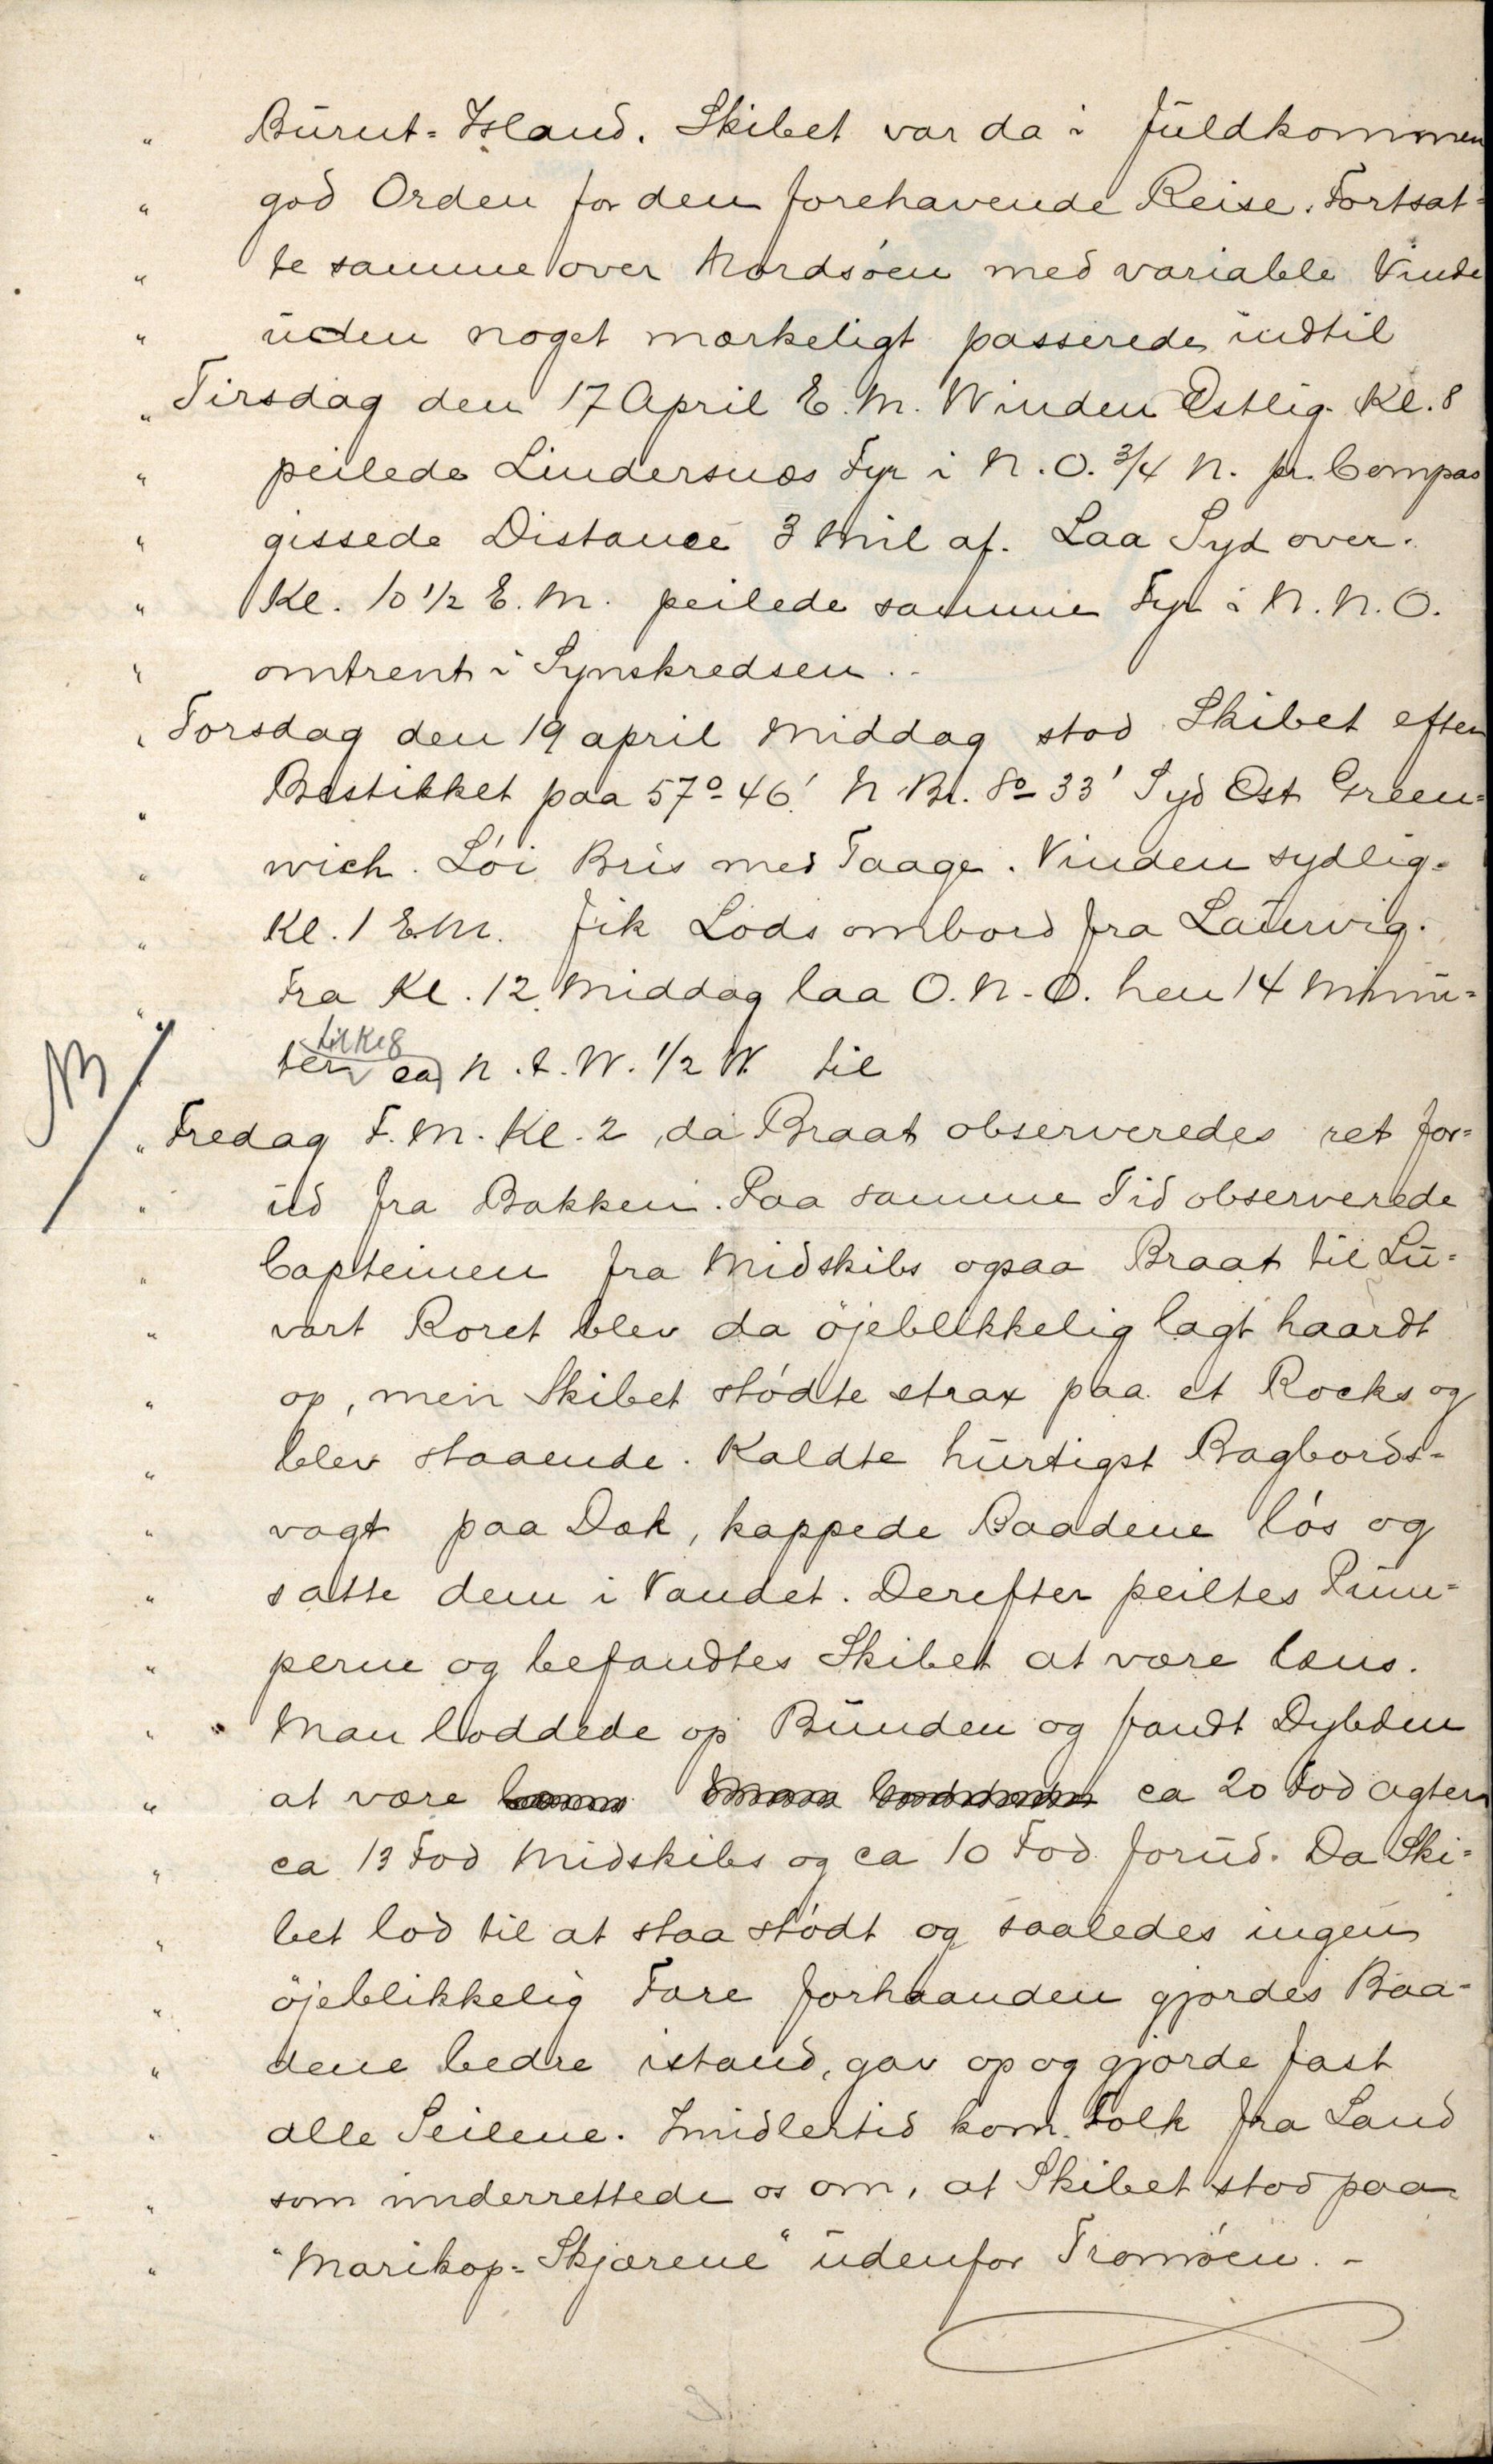 " Burnt=Island. Skibet var da i fuldkommen
" god Orden for den forehavende Reise. Fortsat=
" te samme over Nordsöen med variable Vinde
" uden noget mærkeligt passerede indtil
" Tirsdag den 17 April E.M. Winden Østlig. Kl. 8
" peilede Lindersnæs Fyr i N.O. 3/4 N. pr. Compas
" gissede Distance 3 Mil af. Laa Syd over.
" Kl. 10 1/2 E.M. peilede samme Fyr i N.N.O.
" omtrent i Synskredsen. -
" Torsdag den 19 april Middag stod Skibet efter
" Bestikket paa 57°-46' N Br. 8°-33' Syd Øst Green=
" wich. Löi Bris med Taage. Vinden sydlig.
" Kl. 1 E.M. fik Lods ombord fra Laurvig.
" Fra Kl. 12 Middag laa O.N.O. hen 14 Minu=
til Kl 8
NB " ter ca N.t.W. 1/2 W. til
" Fredag F.M. Kl. 2, da Braat observeredes ret for=
" ud fra Bakken. Paa samme Tid observerede
" Capteinen fra Midskibs ogsaa Braat til Lu=
" vart Roret blev da öjeblikkelig lagt haardt
" op, men Skibet stödte strax paa et Rocks og
" blev staaende. Kaldte hurtigst Bagbords=
" vagt paa Dæk, kappede Baadene lös og
" satte dem i Vandet. Derefter peiltes Pum=
" perne og befandtes Skibet at være læns.
" Man loddede op Bunden og fandt Dybden
" at være læns Man loddede ca 20 Fod agter
" ca 13 Fod Midskibs og ca 10 Fod forud. Da Ski=
" bet lod til at staa stödt og saaledes ingen
" öjeblikkelig Fare forhaanden gjordes Baa=
" dene bedre istand, gav op og gjorde fast
" alle Seilene. Imidlertid kom Folk fra Land
" som underrettede os om, at Skibet stod paa
" "Marikop=Skjærene" udenfor Tromöen. -